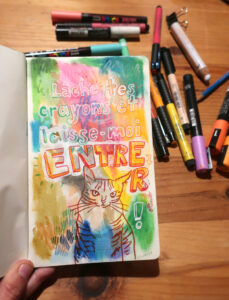 Lâche tes
crayons et
laisse-moi
ENTRE
R
!